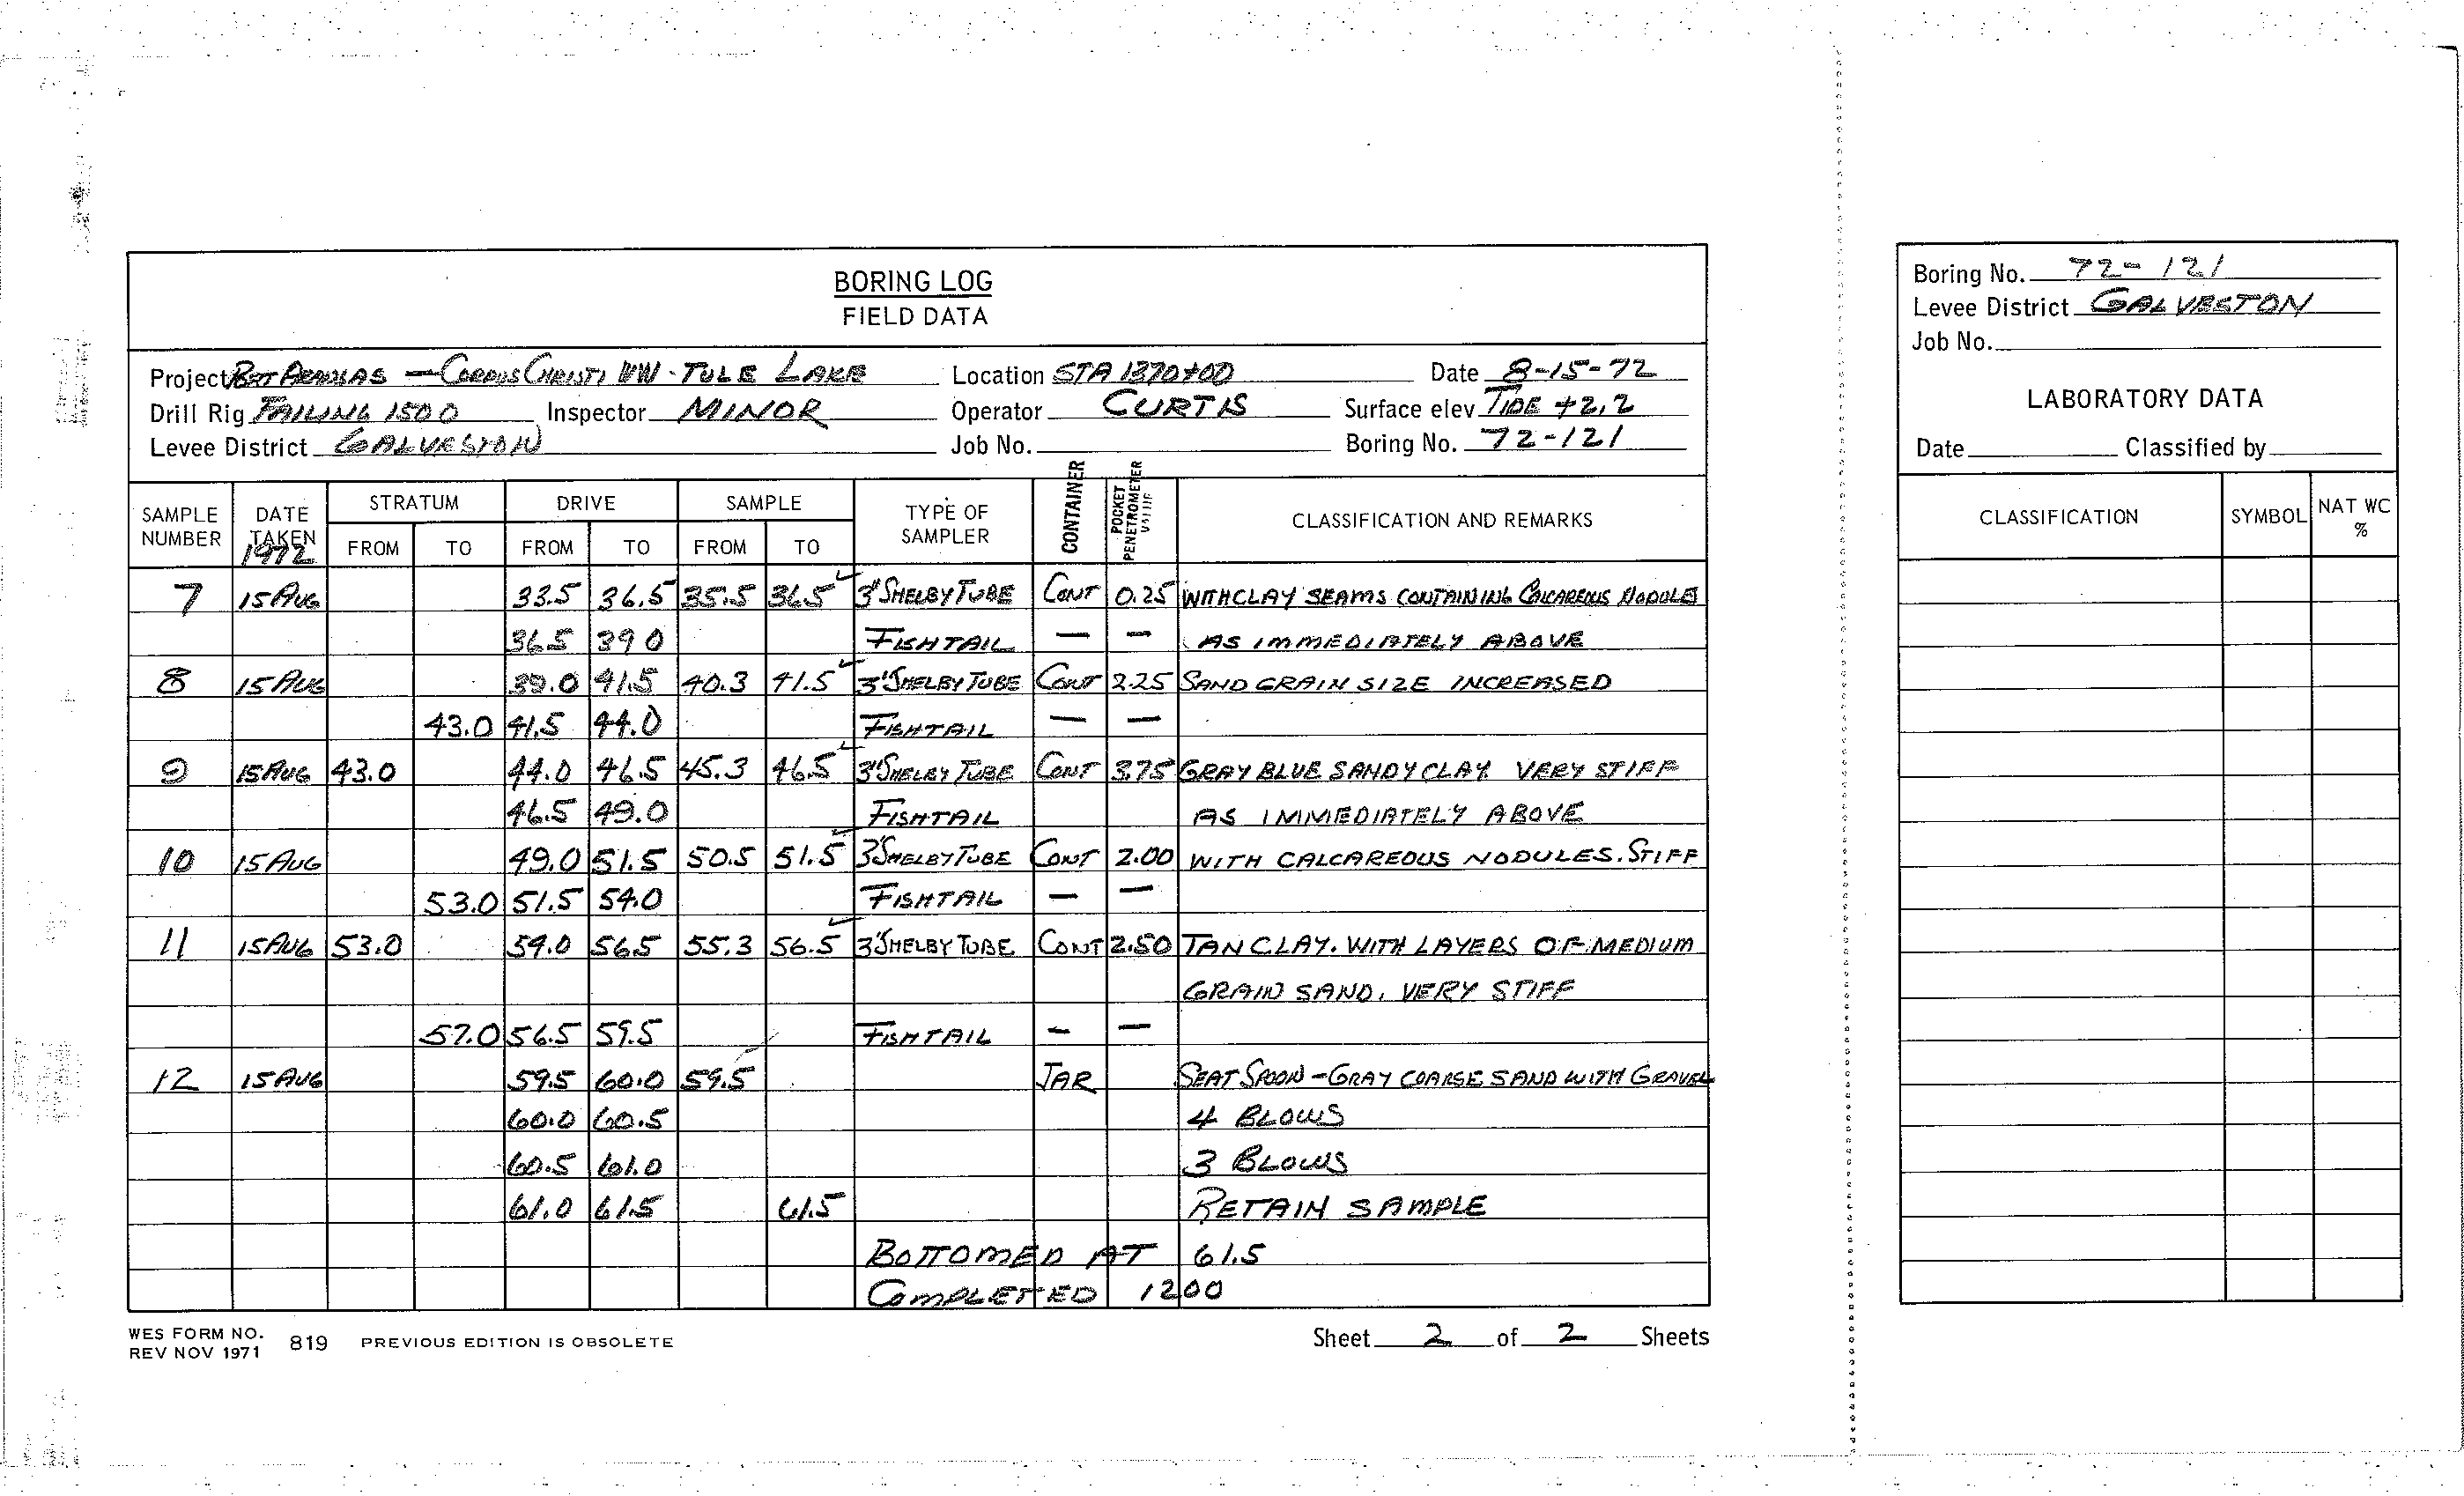 BORING LOG
FIELD DATA
Project PORT ARANSAS — CORPUS CHRISTI WW - TULE LAKE Location STA 1370+00 Date 8-15-72
Drill Rig FAILING 1500 Inspector MINOR Operator CURTIS Surface elev TIDE +2.2
Levee District GALVESTON Job No. Boring No. 72-121
SAMPLE NUMBER DATE TAKEN 1972 STRATUM FROM TO DRIVE FROM TO SAMPLE FROM TO TYPE OF SAMPLER CONTAINER POCKET PENETROMETER VALUE CLASSIFICATION AND REMARKS
7 15 AUG 33.5 36.5 35.5 36.5 3" SHELBY TUBE CONT 0.25 WITH CLAY SEAMS CONTAINING CALCAREOUS NODULES
36.5 39 0 FISHTAIL — — AS IMMEDIATELY ABOVE
8 15 AUG 39.0 41.5 40.3 41.5 3" SHELBY TUBE CONT 2.25 SAND GRAIN SIZE INCREASED
43.0 41.5 44.0 FISHTAIL — —
9 15 AUG 43.0 44.0 46.5 45.3 46.5 3" SHELBY TUBE CONT 3.75 GRAY BLUE SANDY CLAY VERY STIFF
46.5 49.0 FISHTAIL AS IMMEDIATELY ABOVE
10 15 AUG 49.0 51.5 50.5 51.5 3" SHELBY TUBE CONT 2.00 WITH CALCAREOUS NODULES. STIFF
53.0 51.5 54.0 FISHTAIL — —
11 15 AUG 53.0 54.0 56.5 55.3 56.5 3" SHELBY TUBE CONT 2.50 TAN CLAY. WITH LAYERS OF MEDIUM
GRAIN SAND. VERY STIFF
57.0 56.5 59.5 FISHTAIL — —
12 15 AUG 59.5 60.0 59.5 JAR SEAT SPOON - GRAY COARSE SAND WITH GRAVEL
60.0 60.5 4 BLOWS
60.5 61.0 3 BLOWS
61.0 61.5 61.5 RETAIN SAMPLE
BOTTOMED AT 61.5
COMPLETED 1200
WES FORM NO. 819 PREVIOUS EDITION IS OBSOLETE
REV NOV 1971
Sheet 2 of 2 Sheets
Boring No. 72-121
Levee District GALVESTON
Job No.
LABORATORY DATA
Date Classified by
CLASSIFICATION SYMBOL NAT WC %